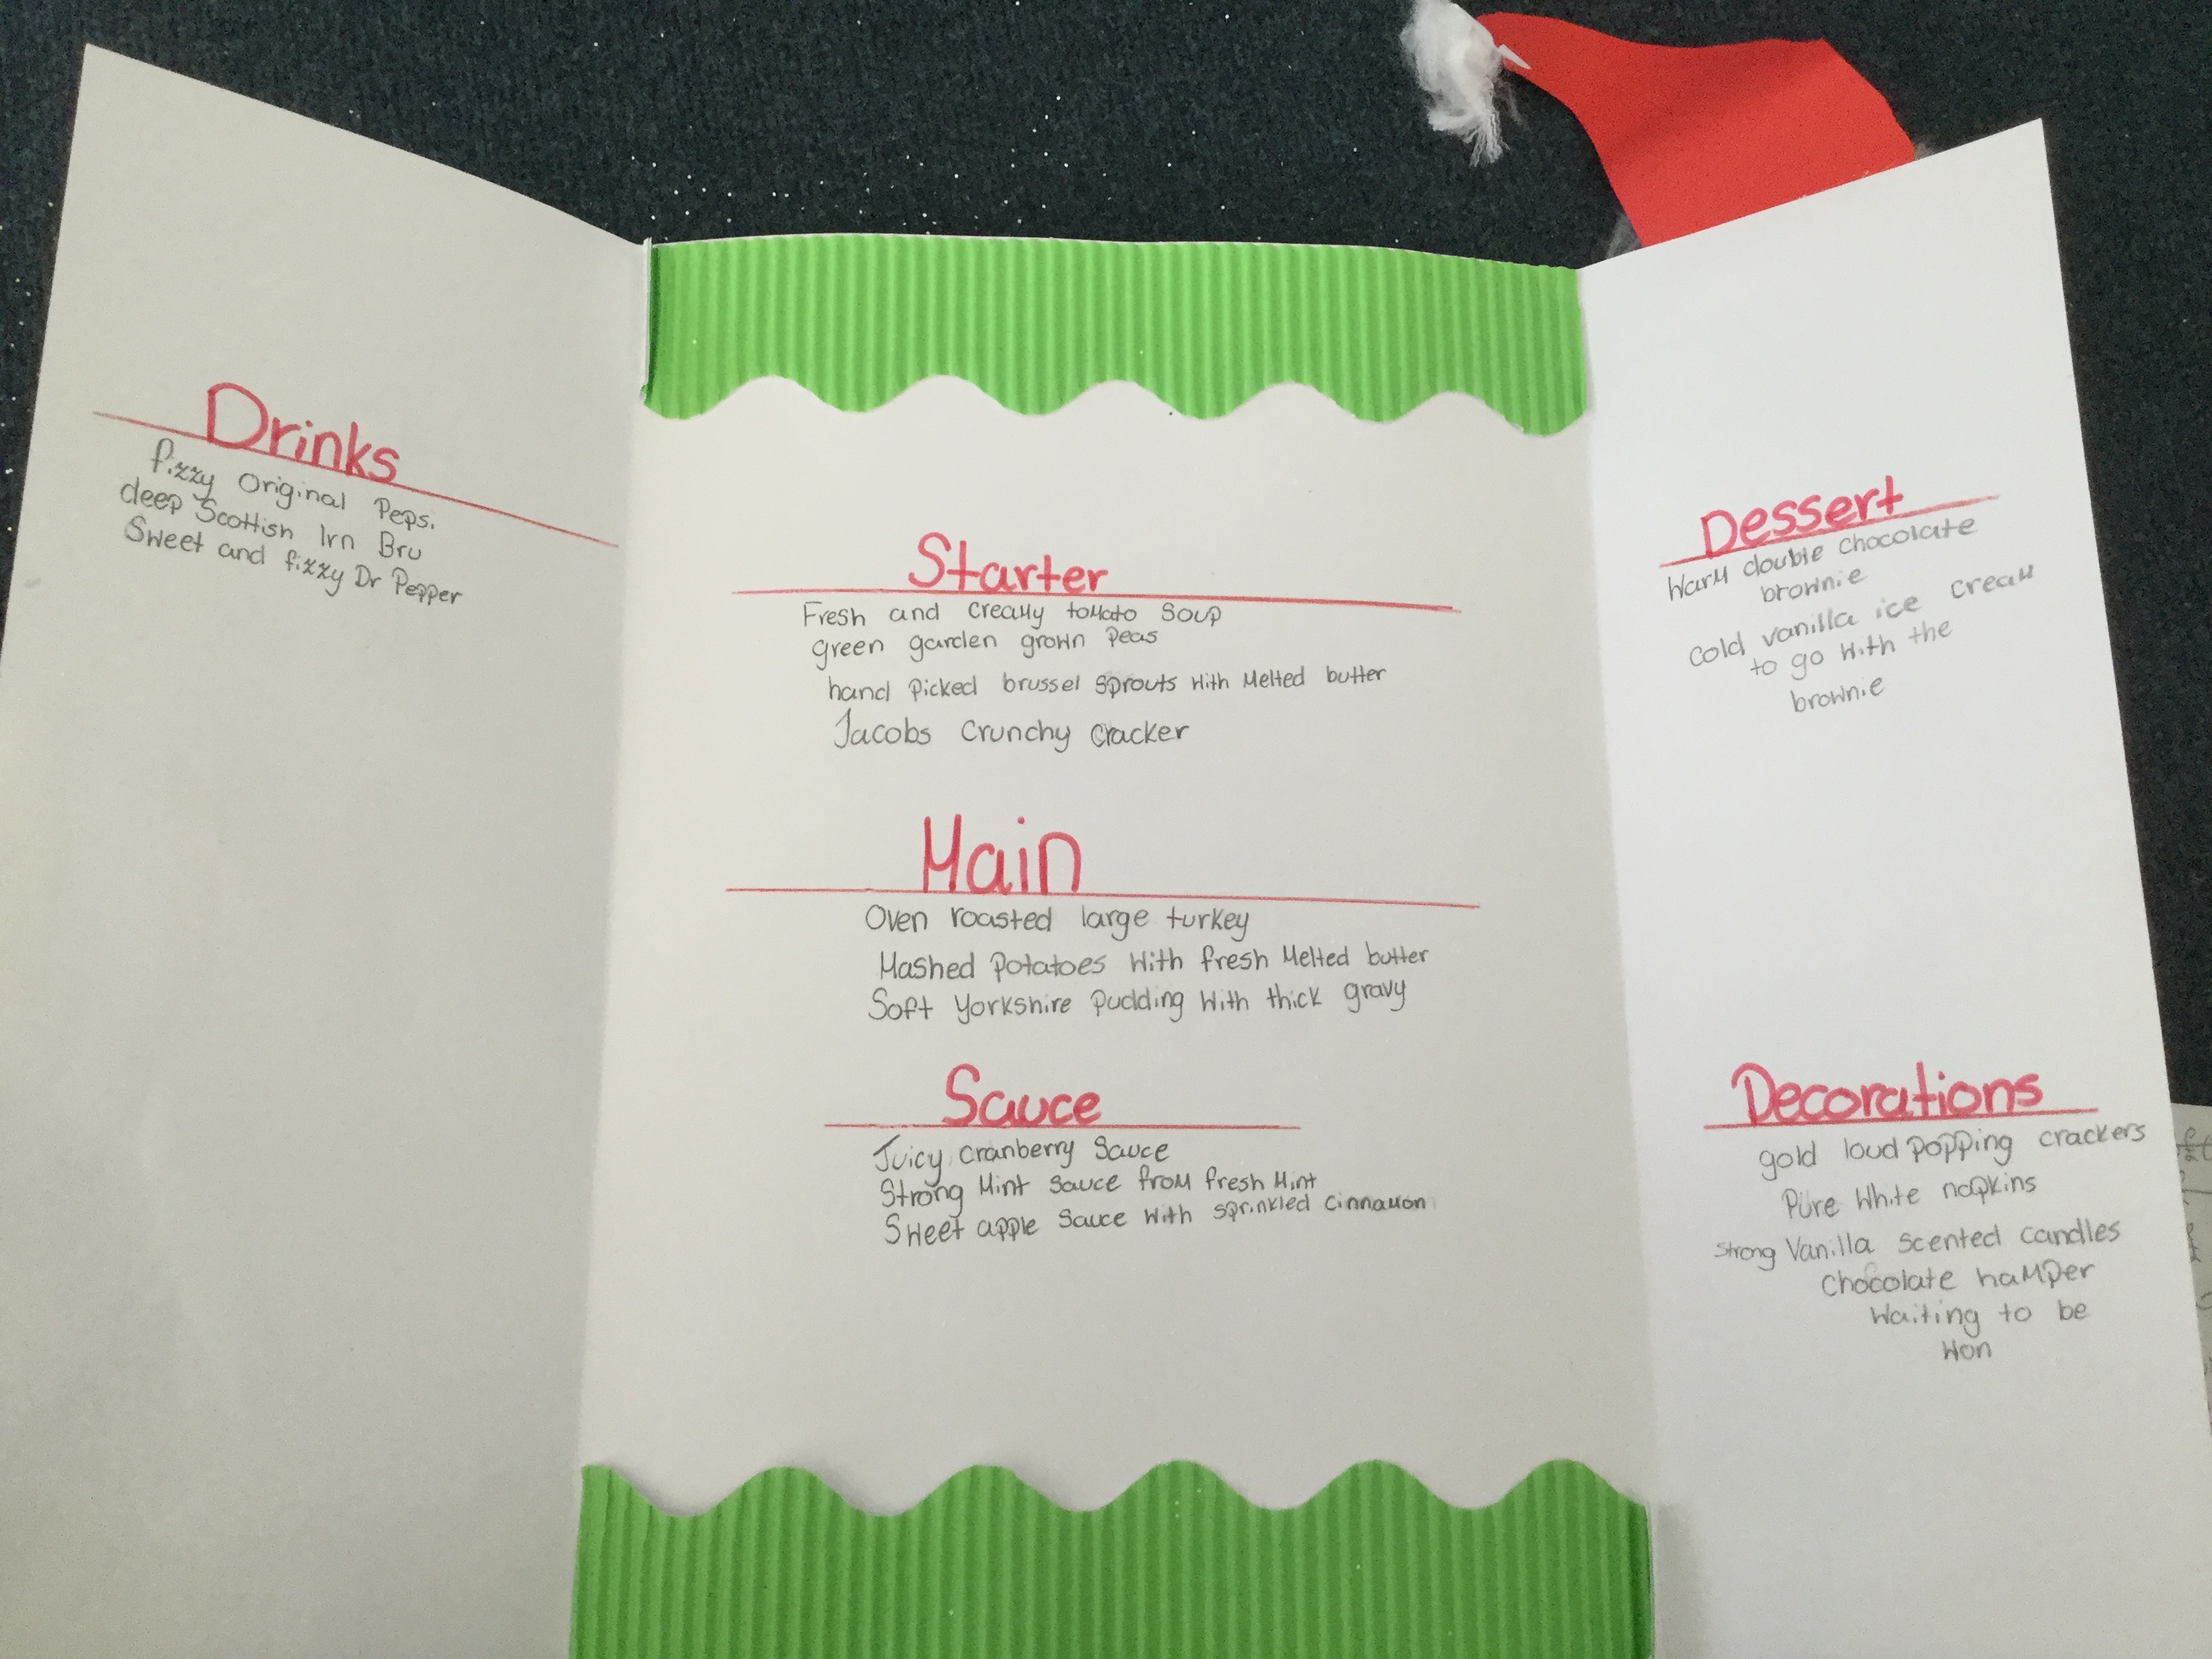 Drinks
fizzy original Peps.
deep Scottish Irn Bru
Sweet and fizzy Dr Pepper
Starter
Fresh and creamy tomato Soup
green garden grown Peas
hand Picked brussel Sprouts with Melted butter
Jacobs Crunchy Cracker
Main
Oven roasted large turkey
Mashed Potatoes with fresh Melted butter
Soft Yorkshire Pudding with thick gravy
Sauce
Juicy cranberry Sauce
Strong Mint Sauce from fresh Mint
Sweet apple Sauce with sprinkled cinnamon
Dessert
Warm double chocolate
brownie
Cold vanilla ice cream
to go with the
brownie
Decorations
gold loud popping crackers
Pure White napkins
Strong Vanilla scented candles
Chocolate hamper
Waiting to be
Won